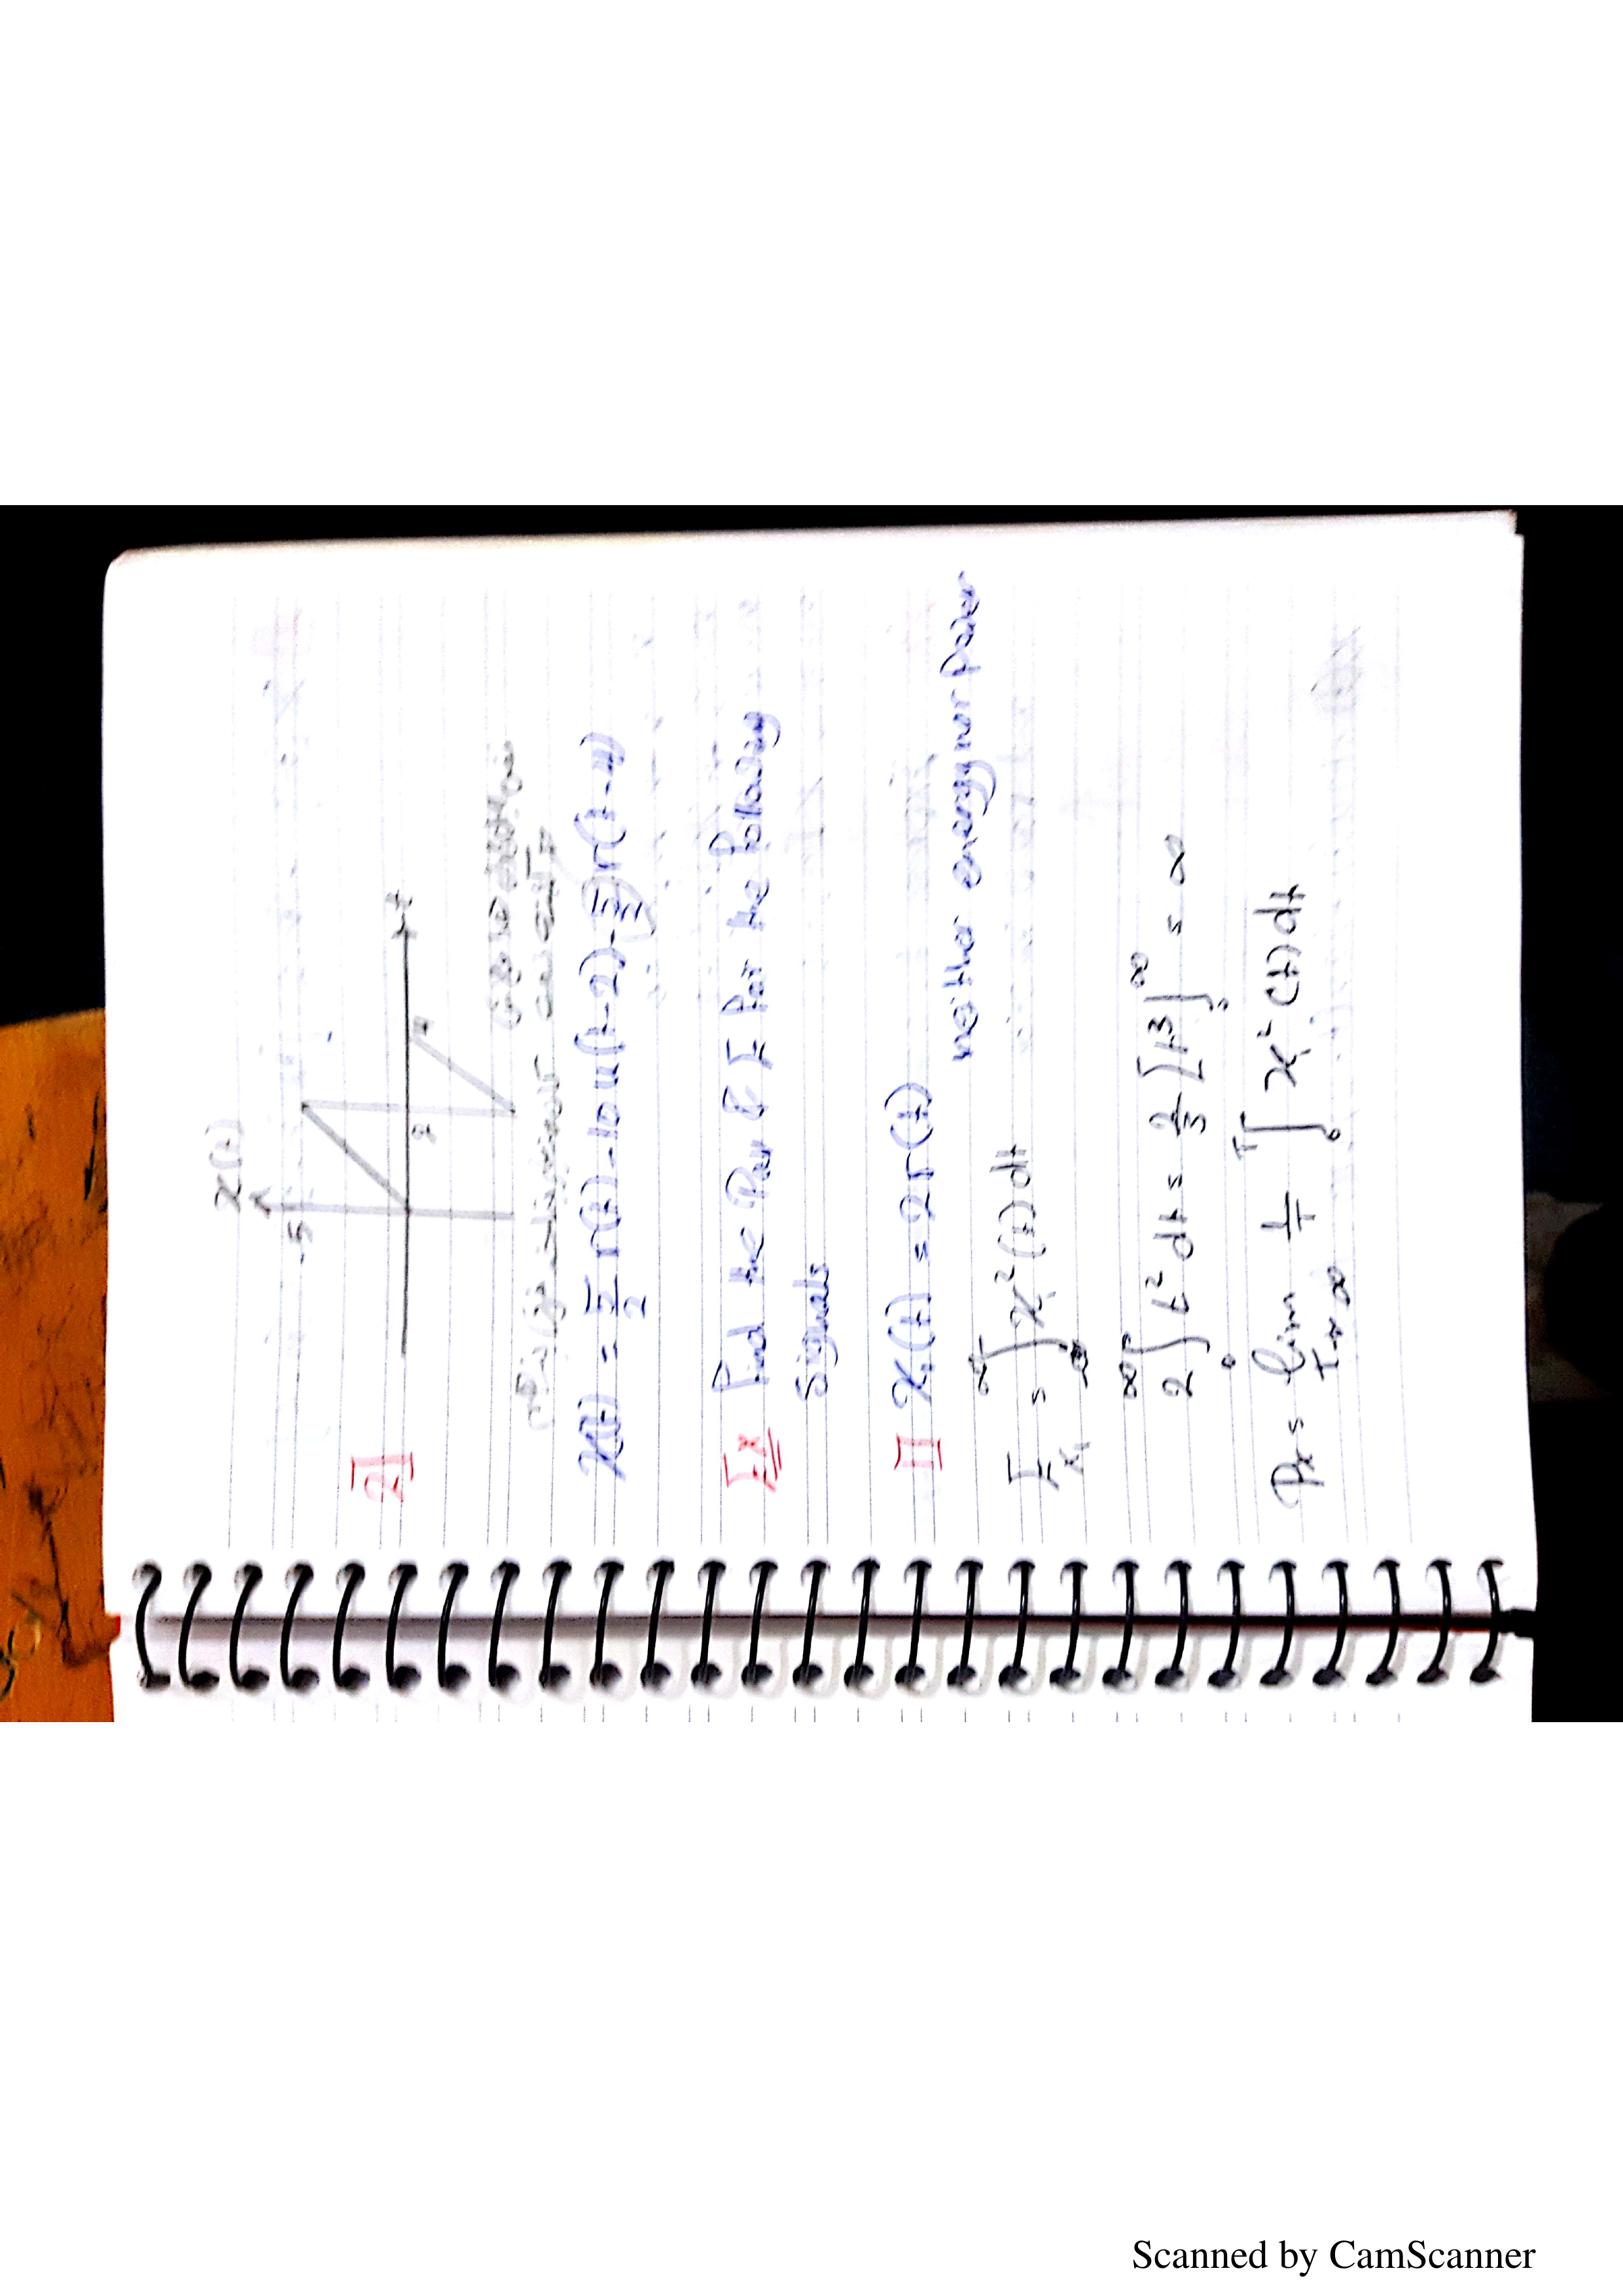 x(t)
5
2]
t
2
4
x(t) = 5/2 r(t) - 10 u(t-2) - 5/2 r(t-4)
Ex Find the Pav & E for the following
signals
1] x₁(t) = 2 r(t)
neither energy nor power
Eₓ₁ = ∫_{-∞}^{∞} x₁²(t) dt
2 ∫_0^∞ t² dt = 2/3 [t³]_0^∞ = ∞
Pₓ = lim_{T→∞} 1/T ∫_0^T x₁²(t) dt
Scanned by CamScanner